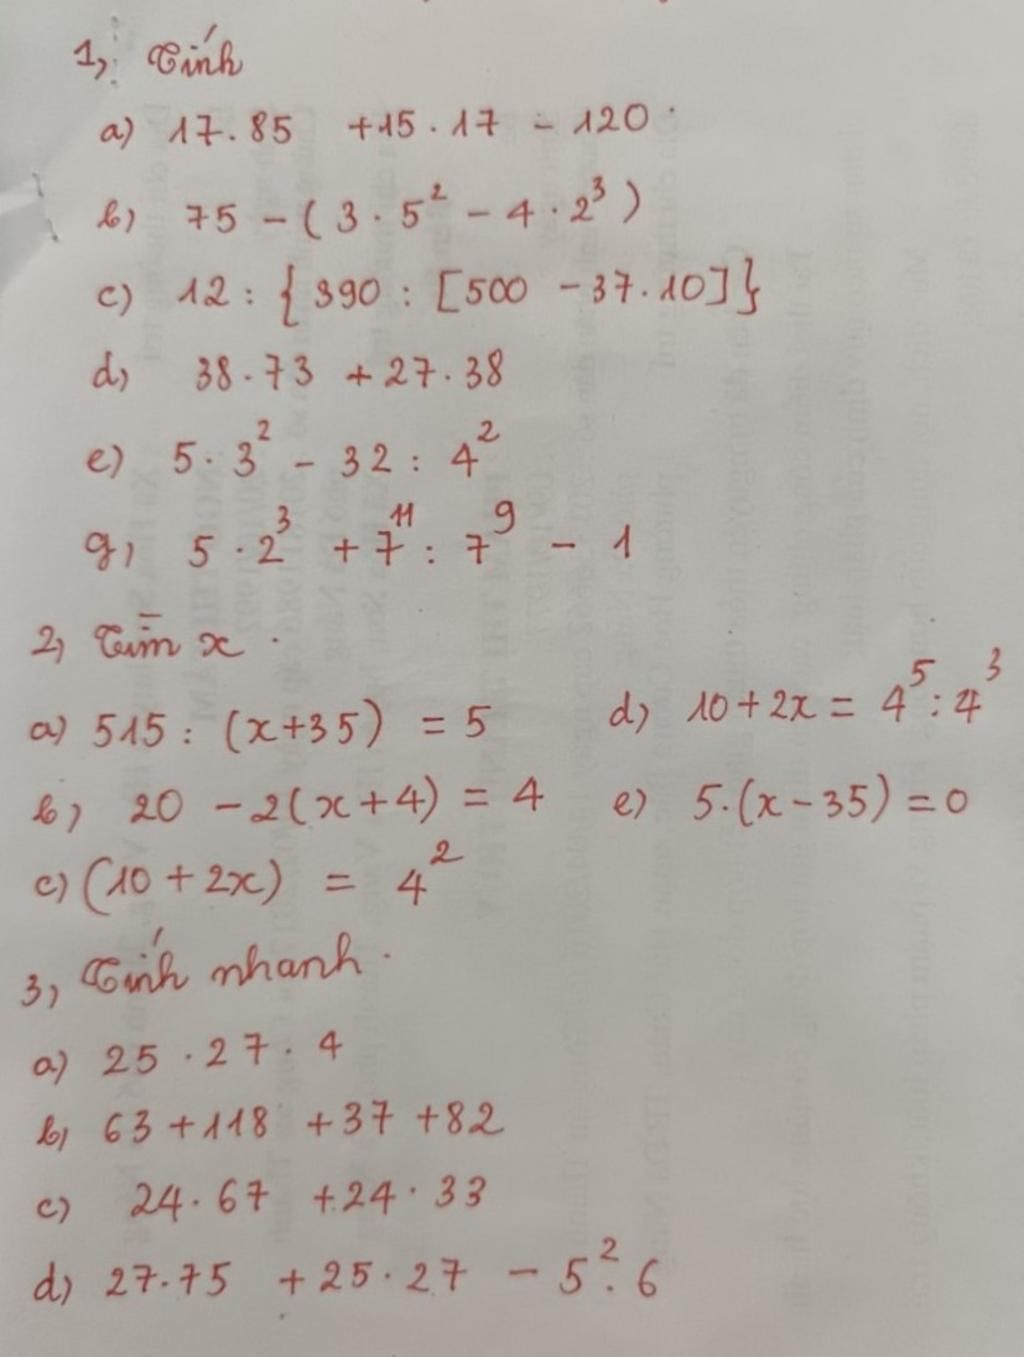 1, Tính
a) 17.85 + 15.17 - 120.
b) 75 - (3.5² - 4.2³)
c) 12 : {390 : [500 - 37.10]}
d, 38.73 + 27.38
e) 5.3² - 32 : 4²
g, 5.2³ + 7¹¹ : 7⁹ - 1
2, Tìm x.
a) 515 : (x+35) = 5
d, 10+2x = 4⁵ : 4³
b, 20 - 2(x+4) = 4
e) 5.(x-35) = 0
c) (10 + 2x) = 4²
3, Tính nhanh.
a) 25.27.4
b, 63 + 118 + 37 + 82
c) 24.67 + 24.33
d) 27.75 + 25.27 - 5².6